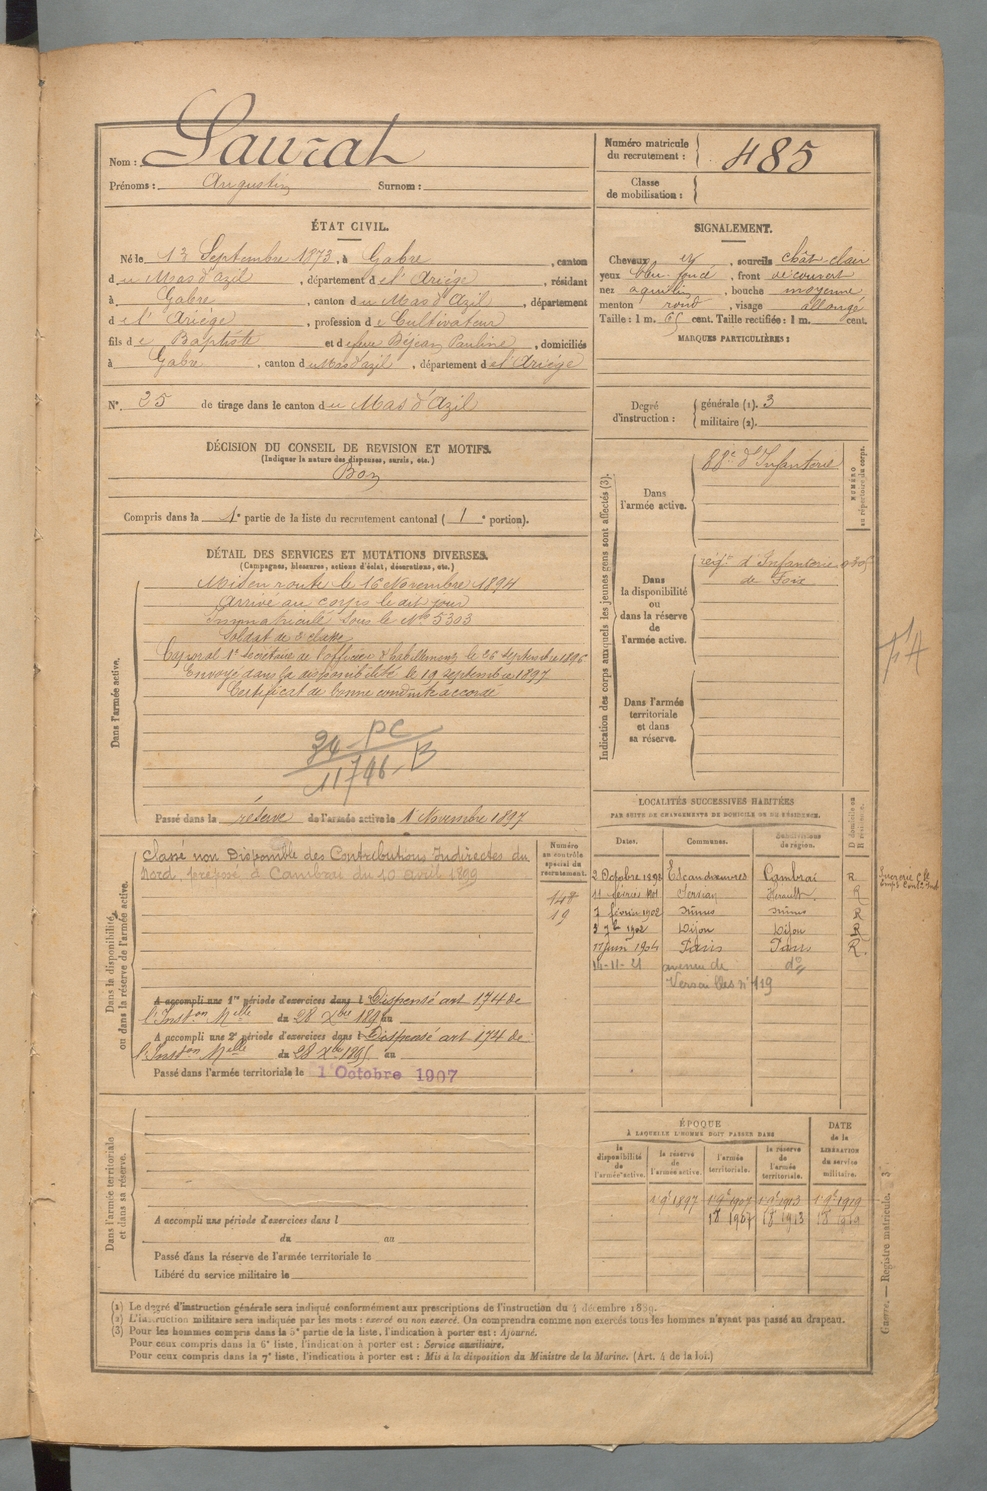 Nom : Laurat
Prénoms : Augustin Surnom :
Numéro matricule du recrutement : 485
Classe de mobilisation :
ÉTAT CIVIL.
Né le 13 Septembre 1873, à Gabre, canton
du Mas d'azil, département de l'Ariège, résidant
à Gabre, canton du Mas d'Azil, département
de l'Ariège, profession de Cultivateur
fils de Baptiste et de feue Dejean Pauline, domiciliés
à Gabre, canton du Mas d'azil, département de l'Ariège
N° 25 de tirage dans le canton du Mas d'Azil
SIGNALEMENT.
Cheveux et, sourcils chât clair
yeux bleu foncé, front découvert
nez aquilin, bouche moyenne
menton rond, visage allongé
Taille : 1 m. 65 cent. Taille rectifiée : 1 m. cent.
MARQUES PARTICULIÈRES :
Degré d'instruction : générale (1). 3
militaire (2).
DÉCISION DU CONSEIL DE REVISION ET MOTIFS.
(Indiquer la nature des dispenses, sursis, etc.)
Bon
Compris dans la 1e partie de la liste du recrutement cantonal ( 1e portion).
DÉTAIL DES SERVICES ET MUTATIONS DIVERSES.
(Campagnes, blessures, actions d'éclat, décorations, etc.)
Dans l'armée active.
Mis en route le 16 Novembre 1894
Arrivé au corps le dit jour
Immatriculé sous le No 5303
Soldat de 2e classe
Caporal 1er secrétaire de l'officier d'habillement le 26 septembre 1896
Envoyé dans la disponibilité le 19 septembre 1897
Certificat de bonne conduite accordé
PC
11746 B
Passé dans la réserve de l'armée active le 1 Novembre 1897
Indication des corps auxquels les jeunes gens sont affectés (3).
NUMÉRO au répertoire du corps.
Dans l'armée active.
88e d'Infanterie
Dans la disponibilité ou dans la réserve de l'armée active.
régt d'Infanterie
de Foix
Dans l'armée territoriale et dans sa réserve.
Dans la disponibilité ou dans la réserve de l'armée active.
Numéro au contrôle spécial du recrutement.
Classé non Disponible des Contributions Indirectes du
Nord, préposé à Cambrai du 10 avril 1899
148
19
A accompli une 1re période d'exercices dans l Dispensé art 174 de
l'Inston Mlle du 28 Xbre au
A accompli une 2e période d'exercices dans l Dispensé art 174 de
l'Inston Mlle du 28 Xbre 1895 au
Passé dans l'armée territoriale le 1 Octobre 1907
LOCALITÉS SUCCESSIVES HABITÉES
PAR SUITE DE CHANGEMENTS DE DOMICILE OU DE RÉSIDENCE.
Dates. Communes. Subdivisions de région. D domicile ou R résidence.
2 Octobre 1898 Escaudoeuvres Cambrai R
11 février 1901 Servian Hérault R
7 février 1902 Nîmes Nîmes R
3 7bre 1902 Dijon Dijon R
17 juin 1904 Paris Paris R
14-11-21 avenue de do
Versailles n° 119
ÉPOQUE
À LAQUELLE L'HOMME DOIT PASSER DANS
DATE de la LIBÉRATION du service militaire.
la disponibilité de l'armée active. la réserve de l'armée active. l'armée territoriale. la réserve de l'armée territoriale.
1 9bre 1897 1 9bre 1907 1 9bre 1913 1 9bre 1919
1 8 1907 1 8 1913 1 8 1919
Dans l'armée territoriale et dans sa réserve.
A accompli une période d'exercices dans l
du au
Passé dans la réserve de l'armée territoriale le
Libéré du service militaire le
Guerre. — Registre matricule. 3.
(1) Le degré d'instruction générale sera indiqué conformément aux prescriptions de l'instruction du 4 décembre 1889.
(2) L'instruction militaire sera indiquée par les mots : exercé ou non exercé. On comprendra comme non exercés tous les hommes n'ayant pas passé au drapeau.
(3) Pour les hommes compris dans la 5e partie de la liste, l'indication à porter est : Ajourné.
Pour ceux compris dans la 6e liste, l'indication à porter est : Service auxiliaire.
Pour ceux compris dans la 7e liste, l'indication à porter est : Mis à la disposition du Ministre de la Marine. (Art. 4 de la loi.)